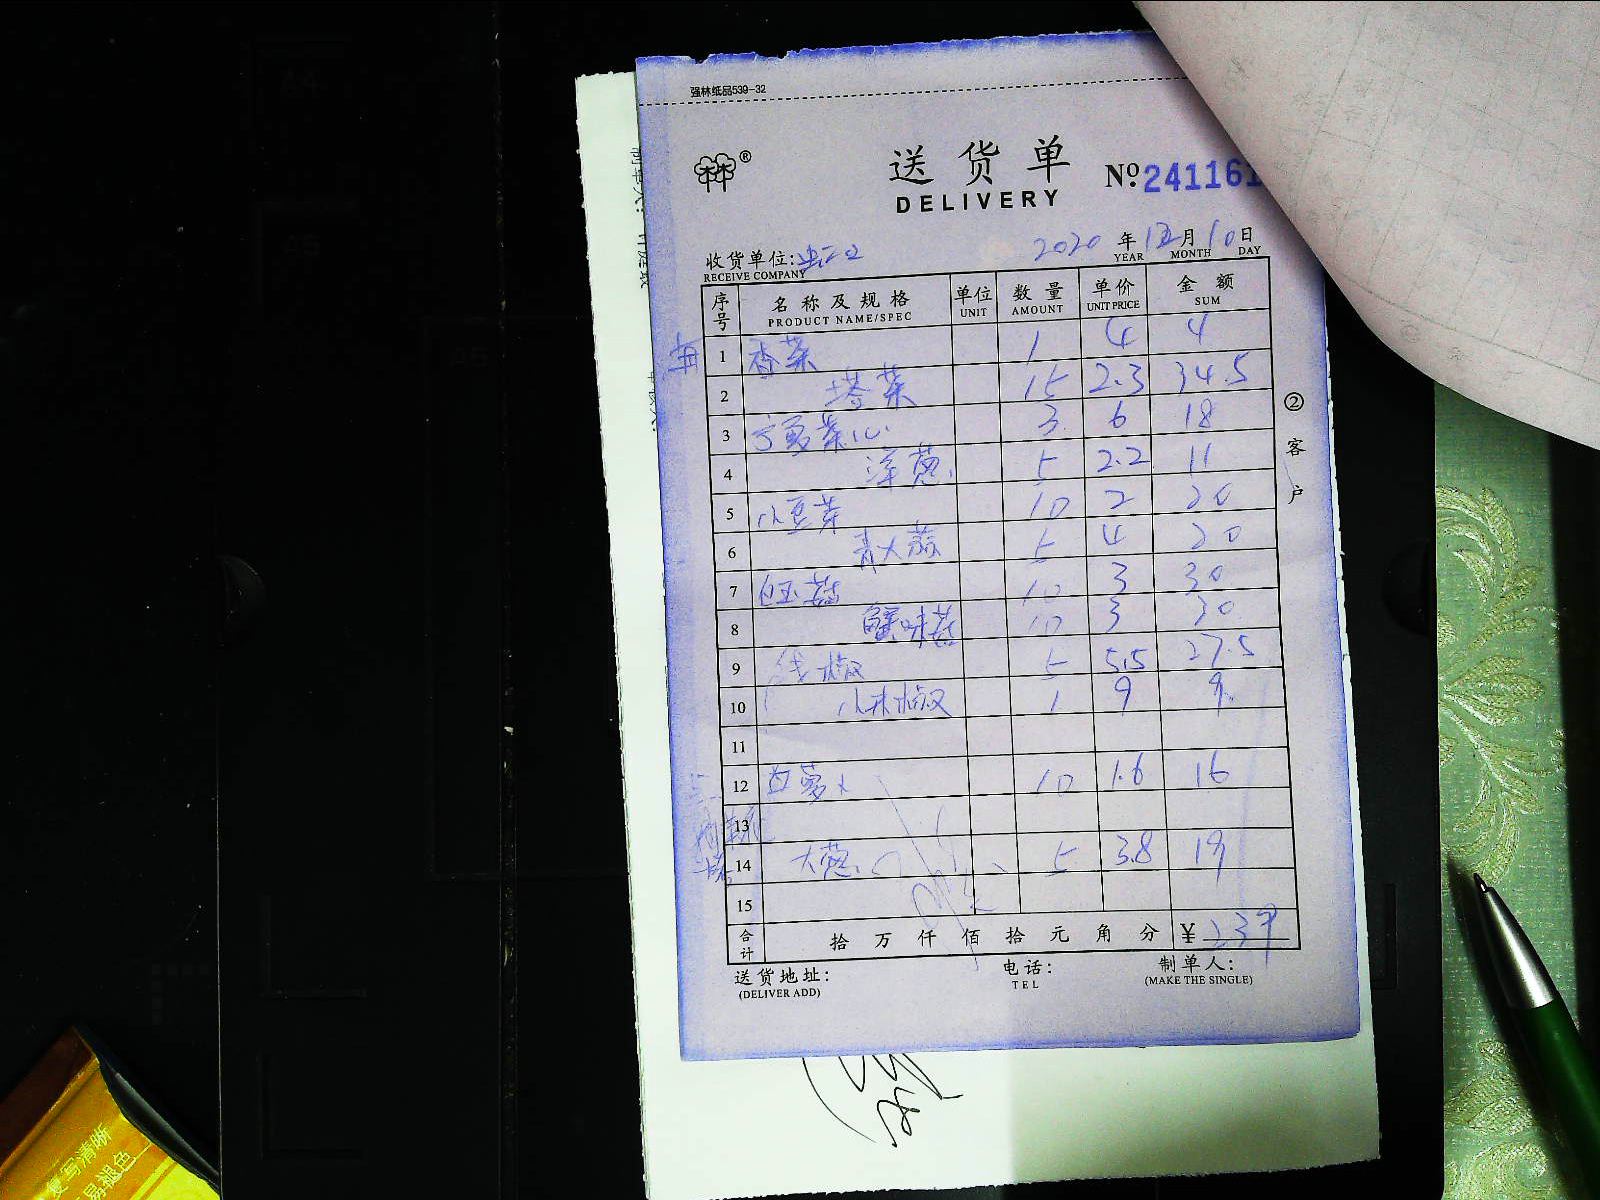 强林纸品539-32
送货单
DELIVERY
№ 241161
收货单位:
RECEIVE COMPANY
2020 年 12 月 10 日
YEAR MONTH DAY
序号 名称及规格 单位 数量 单价 金额
PRODUCT NAME/SPEC UNIT AMOUNT UNIT PRICE SUM
1 香菜 1 4 4
2 塔菜 15 2.3 34.5
3 宁夏菜心 3 6 18
4 洋葱 5 2.2 11
5 小豆芽 10 2 20
6 青大蒜 5 4 20
7 白玉菇 10 3 30
8 蟹味菇 10 3 30
9 线椒 5 5.5 27.5
10 小米椒 1 9 9
11
12 白萝卜 10 1.6 16
13
14 大葱 5 3.8 19
15
合计 拾 万 仟 佰 拾 元 角 分 ¥ 239
送货地址:
(DELIVER ADD)
电话:
TEL
制单人:
(MAKE THE SINGLE)
②客户
复写清晰
易褪色